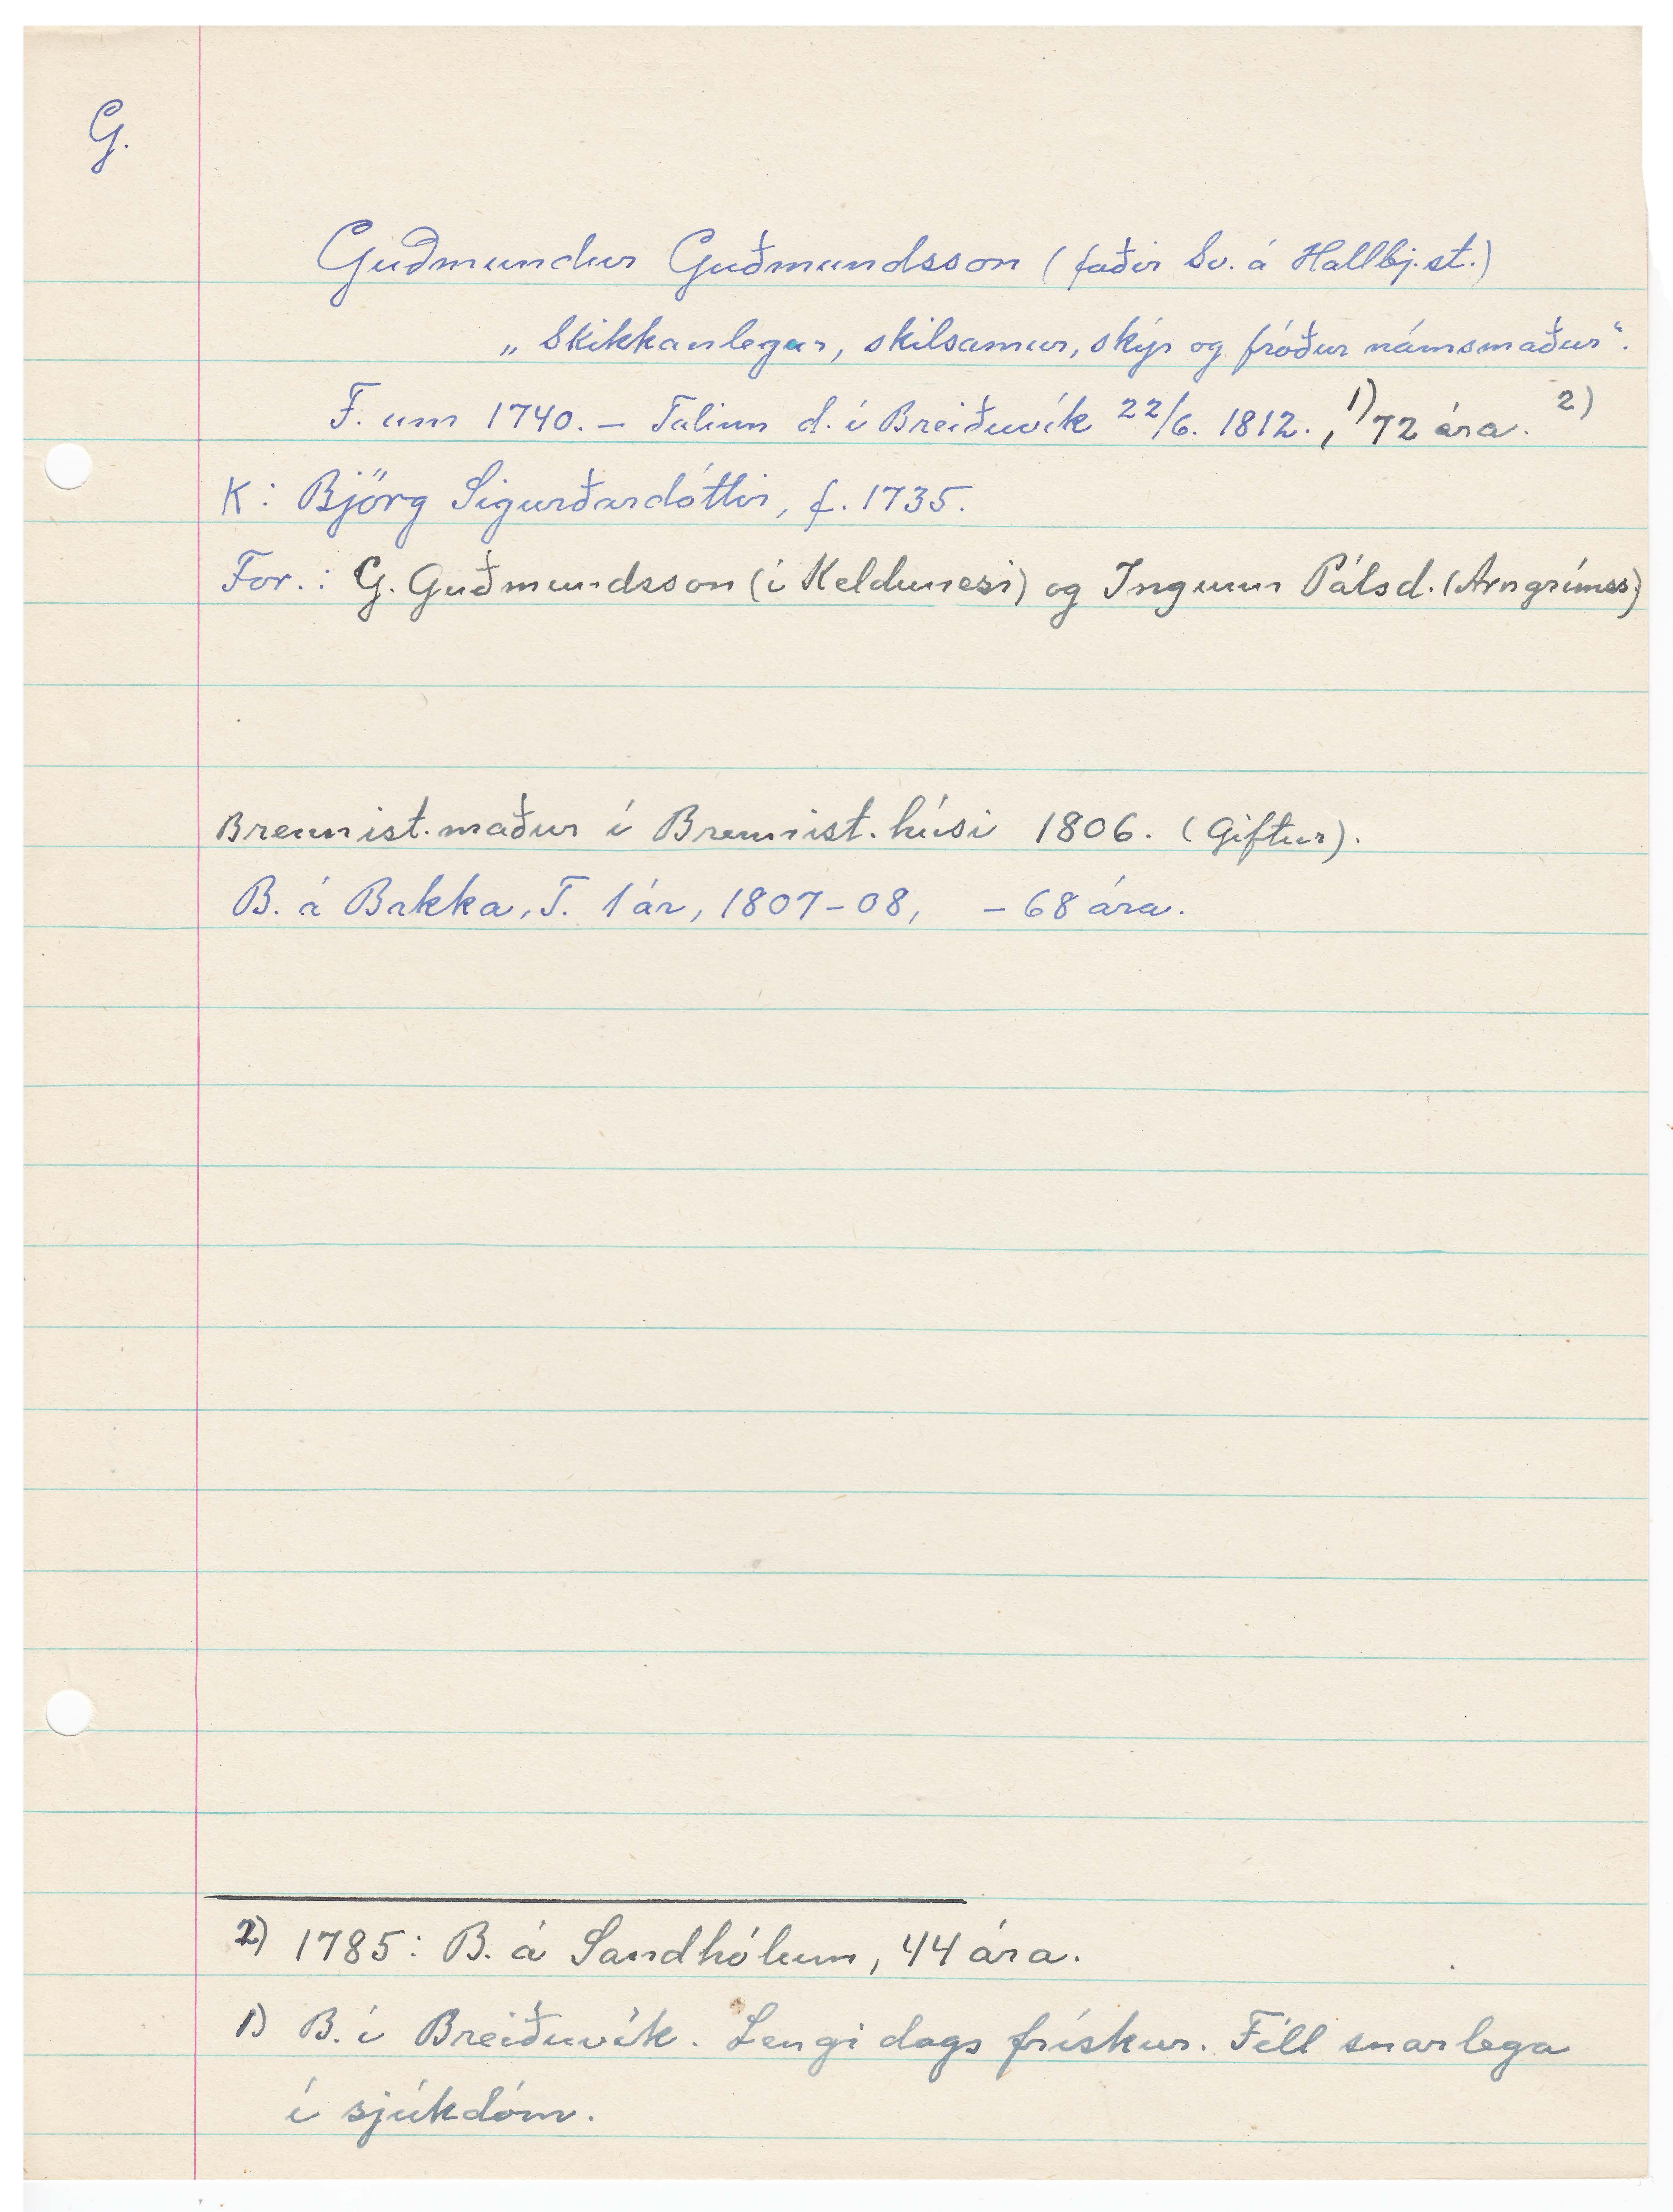 G.
Guðmundur Guðmundsson (faðir Sv. á Hallbj.st.)
„Skikkanlegur, skilsamur, skýr og fróður námsmaður“.
F. um 1740. – Talinn d. í Breiðuvík 22/6. 1812., 1) 72 ára. 2)
K: Björg Sigurðardóttir, f. 1735.
For.: G. Guðmundsson (í Keldunesi) og Ingunn Pálsd. (Arngrímss)
Brennist.maður í Brennist.húsi 1806. (Giftur).
B. á Bakka, T. 1 ár, 1807-08, – 68 ára.
2) 1785: B. á Sandhólum, 44 ára.
1) B. í Breiðuvík. Lengi dags frískur. Féll snarlega
í sjúkdóm.